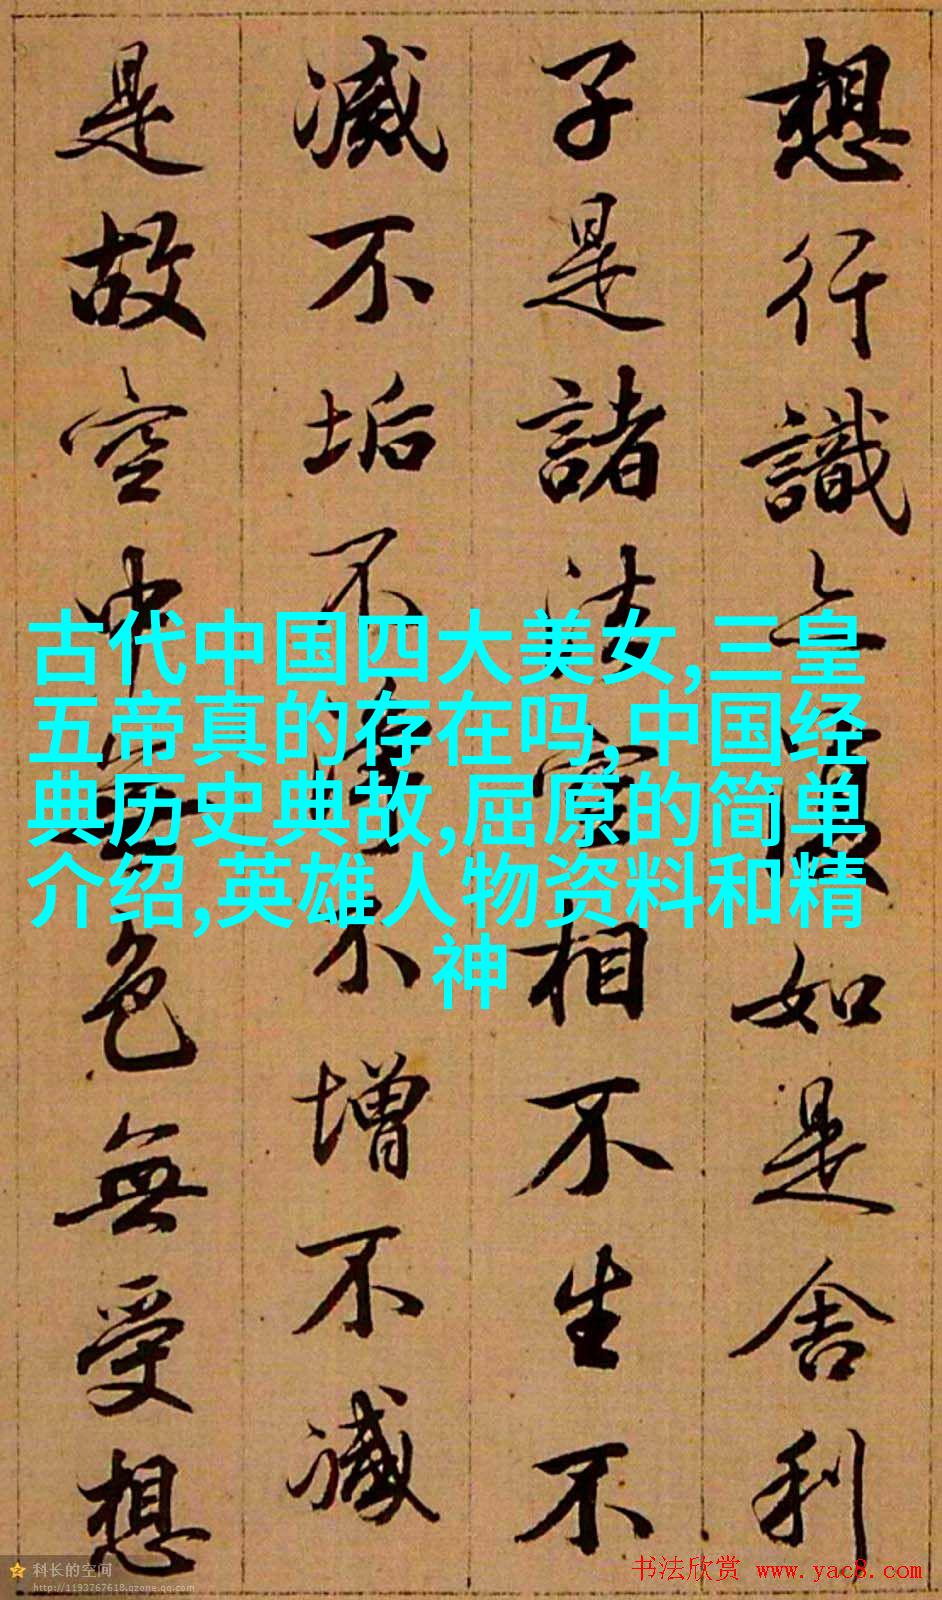 想行識亦復如是舍利
子是諸法空相不生不
滅不垢不淨不增不減
是故空中無色無受想
古代中国四大美女,三皇
五帝真的存在吗,中国经
典历史典故,屈原的简单
介绍,英雄人物资料和精
神
科长的空间
http://1193767618.qzone.qq.com
书法欣赏 www.yac8.com